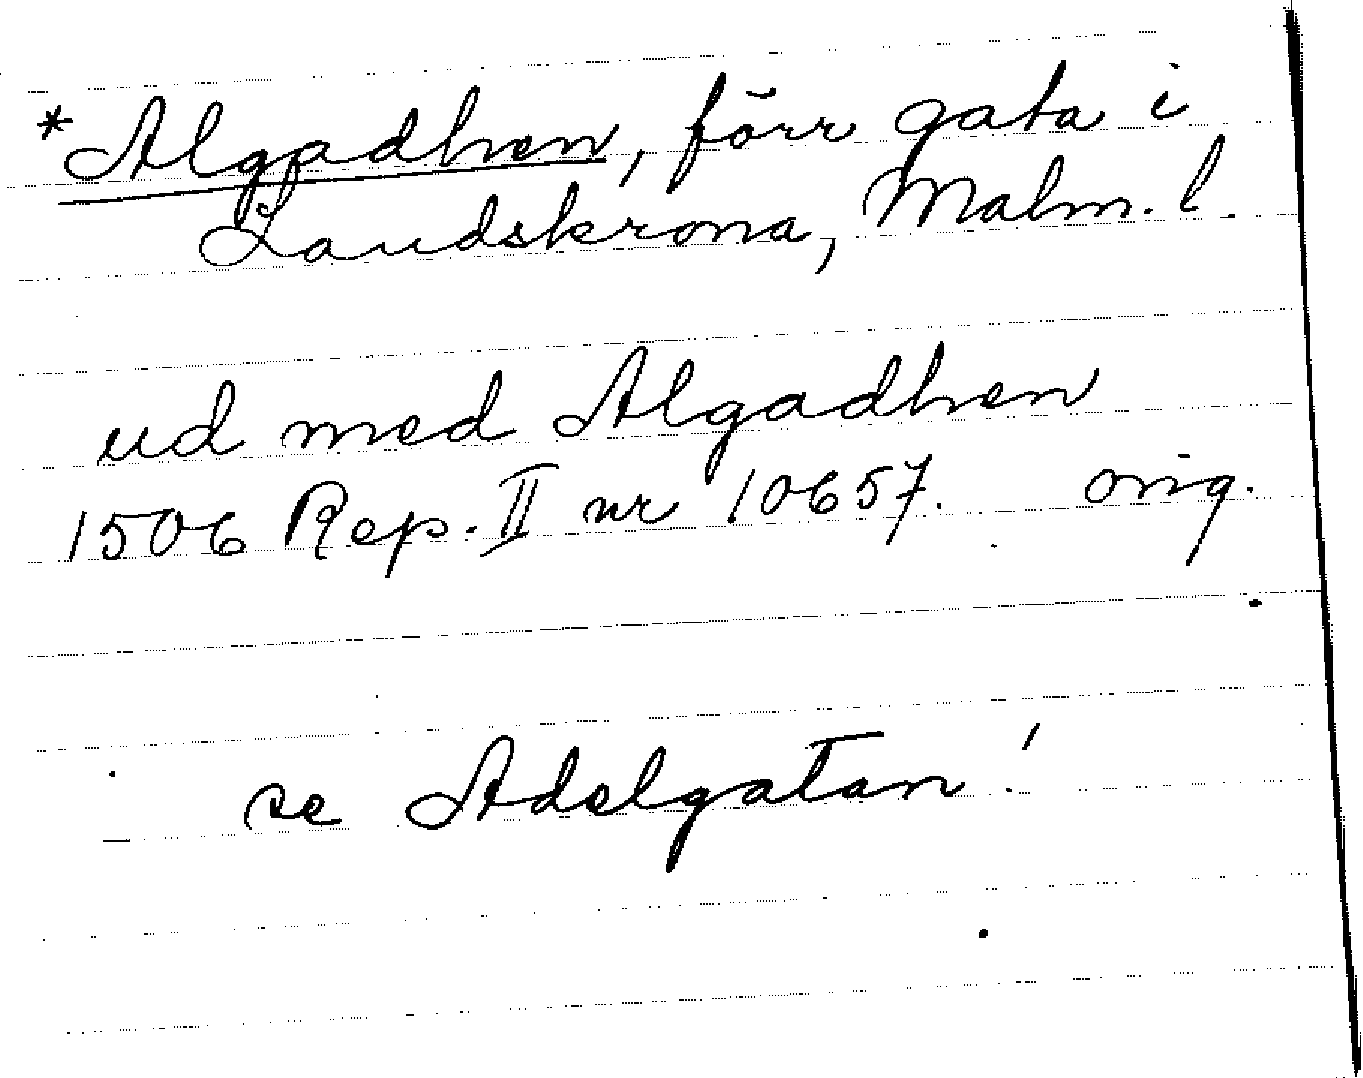 *Algadhen, förr gata i
Landskrona, Malm. l.
ud med Algadhen
1506 Rep. II nr 10657. orig.
se Adelgatan!